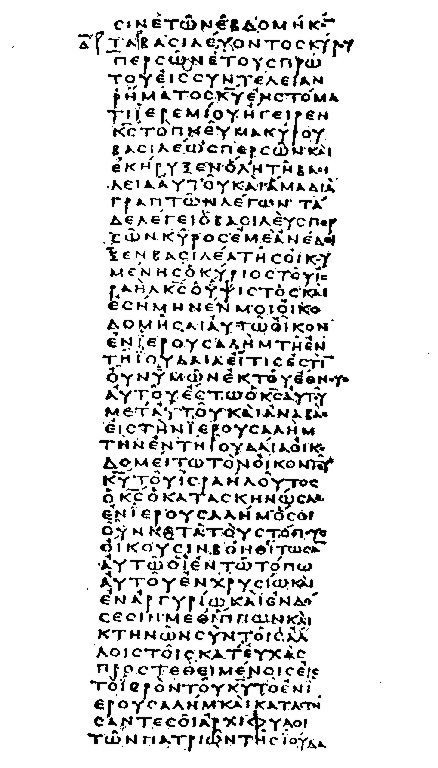 ϹΙΝΕΤΩΝΕΒΔΟΜΗΚΟ̅
ΤΑΒΑϹΙΛΕΥΟΝΤΟϹΚΥΡΟΥ
ΠΕΡϹΩΝΕΤΟΥϹΠΡΩ
ΤΟΥΕΙϹϹΥΝΤΕΛΕΙΑΝ
ΡΗΜΑΤΟϹΚ̅Υ̅ΕΝϹΤΟΜΑ
ΤΙΙΕΡΕΜΙΟΥΗΓΕΙΡΕΝ
Κ̅Ϲ̅ΤΟΠΝΕΥΜΑΚΥΡΟΥ
ΒΑϹΙΛΕΩϹΠΕΡϹΩΝΚΑΙ
ΕΚΗΡΥΞΕΝΟΛΗΤΗΒΑϹΙ
ΛΕΙΑΑΥΤΟΥΚΑΙΑΜΑΔΙΑ
ΓΡΑΠΤΩΝΛΕΓΩΝΤΑ
ΔΕΛΕΓΕΙΟΒΑϹΙΛΕΥϹΠΕΡ
ϹΩΝΚΥΡΟϹΕΜΕΑΝΕΔΕΙ
ΞΕΝΒΑϹΙΛΕΑΤΗϹΟΙΚΟΥ
ΜΕΝΗϹΟΚΥΡΙΟϹΤΟΥΙϹ
ΡΑΗΛΚ̅Ϲ̅ΟΥΨΙϹΤΟϹΚΑΙ
ΕϹΗΜΗΝΕΝΜΟΙΟΙΚΟ
ΔΟΜΗϹΑΙΑΥΤΩΟΙΚΟΝ
ΕΝΙΕΡΟΥϹΑΛΗΜΤΗΕΝ
ΤΗΙΟΥΔΑΙΑΕΙΤΙϹΕϹΤΙ̅
ΟΥΝΥΜΩΝΕΚΤΟΥΕΘΝΟΥϹ
ΑΥΤΟΥΕϹΤΩΟΚ̅Ϲ̅ΑΥΤΟΥ
ΜΕΤΑΥΤΟΥΚΑΙΑΝΑΒΑϹ
ΕΙϹΤΗΝΙΕΡΟΥϹΑΛΗΜ
ΤΗΝΕΝΤΗΙΟΥΔΑΙΑΟΙΚΟ
ΔΟΜΕΙΤΩΤΟΝΟΙΚΟΝΤΟΥ
Κ̅Υ̅ΤΟΥΙϹΡΑΗΛΟΥΤΟϹ
ΟΚ̅Ϲ̅ΟΚΑΤΑϹΚΗΝΩϹΑϹ
ΕΝΙΕΡΟΥϹΑΛΗΜΟϹΟΙ
ΟΥΝΚΑΤΑΤΟΥϹΤΟΠΟΥϹ
ΟΙΚΟΥϹΙΝΒΟΗΘΕΙΤΩϹΑ̅
ΑΥΤΩΟΙΕΝΤΩΤΟΠΩ
ΑΥΤΟΥΕΝΧΡΥϹΙΩΚΑΙ
ΕΝΑΡΓΥΡΙΩΚΑΙΕΝΔΟ
ϹΕϹΙΝΜΕΘΙΠΠΩΝΚΑΙ
ΚΤΗΝΩΝϹΥΝΤΟΙϹΑΛ
ΛΟΙϹΤΟΙϹΚΑΤΕΥΧΑϹ
ΠΡΟϹΤΕΘΕΙΜΕΝΟΙϹΕΙϹ
ΤΟΙΕΡΟΝΤΟΥΚ̅Υ̅ΤΟΕΝΙ
ΕΡΟΥϹΑΛΗΜΚΑΙΚΑΤΑϹΤΗ
ϹΑΝΤΕϹΟΙΑΡΧΙΦΥΛΟΙ
ΤΩΝΠΑΤΡΙΩΝΤΗϹΙΟΥΔΑ